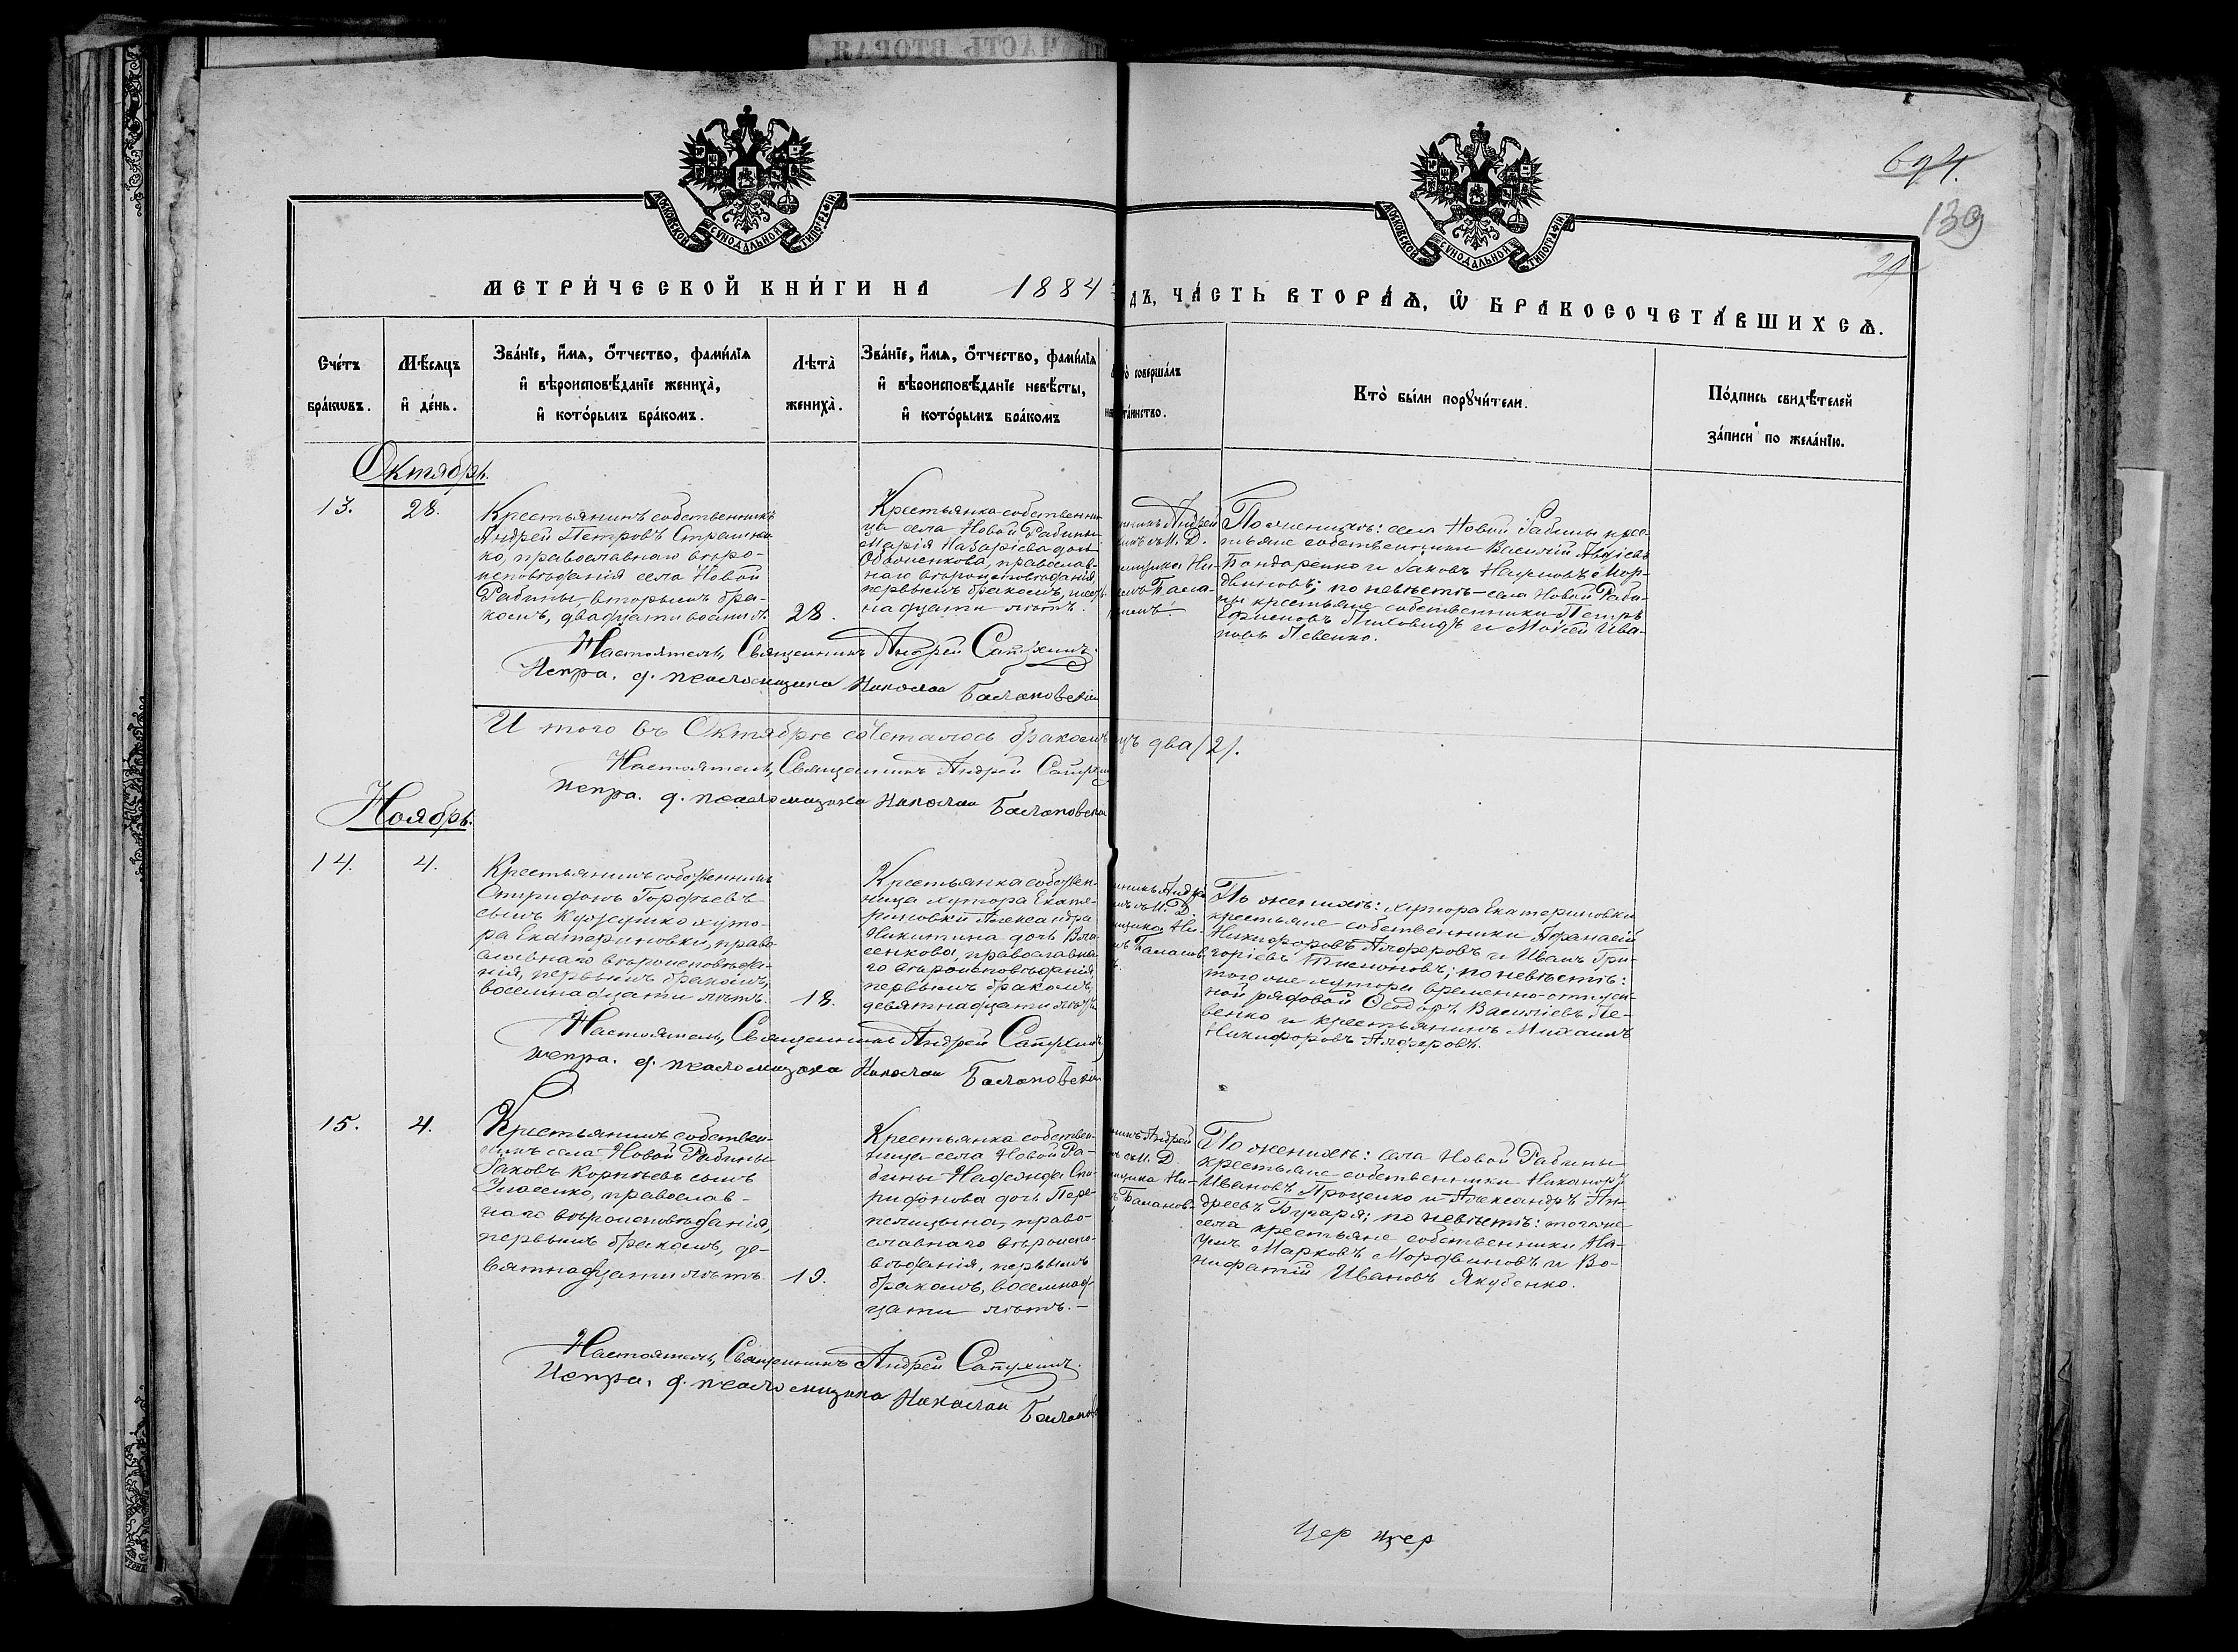 ЧАСТЬ ВТОРАЯ,
694.
139
29
МОСКОВСКОЙ СѴНОДАЛЬНОЙ ТИПОГРАФІИ
МОСКОВСКОЙ СѴНОДАЛЬНОЙ ТИПОГРАФІИ
МЕТРИ́ЧЕСКОЙ КНИ́ГИ НА 1884 ДЪ, ЧА́СТЬ ВТОРА́Ѧ, Ѡ҆ БРАКОСОЧЕТА́ВШИХСѦ.
Сче́тъ
бра́кѡвъ.
Мѣ́сѧцъ
и҆ де́нь.
Зва́нїе, и҆́мѧ, ѻ҆́тчество, фами́лїѧ
и҆ вѣроисповѣ́данїе жениха̀,
и҆ кото́рымъ бра́комъ.
Лѣта̀
жениха̀.
Зва́нїе, и҆́мѧ, ѻ҆́тчество, фами́лїѧ
и҆ вѣроисповѣ́данїе невѣ́сты,
и҆ кото́рымъ бра́комъ
соверша́лъ
та́инство.
Кто̀ бы́ли порꙋчи́тели.
По́дпись свидѣ́телей
за́писи по жела́нїю.
Октябрь.
13.
28.
Крестьянинъ собственникъ
Андрей Петровъ
ко, православнаго вѣро-
исповѣданія села Новой
Рабины вторымъ бра-
комъ, двадцати восьми л.
28.
Крестьянка собственни
ца села Новой Рабины
Марія Назаріева дочь
православ-
наго вѣроисповѣданія,
первымъ бракомъ, шест-
надцати лѣтъ.
Андрей
По женихѣ: села Новой Рабины крес-
тьяне собственники Василій
Бондаренко и Іаковъ Наумовъ Мор-
двиновъ; по невѣстѣ - села Новой Раби-
ны крестьяне собственники Петръ
и Моисей Ива-
новъ Певенко.
Настоятель, Священникъ Андрей Сапухинъ.
Испра. д. псаломщика Николай Балановскій
И того въ Октябрѣ сочеталось бракомъ два /2/.
Настоятель, Священникъ Андрей Сапухин
Испра. д. псаломщика Николай Балановскій
Ноябрь.
14.
4.
Крестьянинъ собственникъ
Спиридонъ Гордѣевъ
сынъ хуто-
ра Екатериновки, право
славнаго вѣроисповѣда-
нія, первымъ бракомъ,
восемнадцати лѣтъ.
18.
Крестьянка собствен-
ница хутора Екате-
риновки Александра
Никитина дочь Вла-
сенкова, православна-
го вѣроисповѣданія,
первымъ бракомъ,
девятнадцати лѣтъ
По женихѣ: хутора Екатериновки
крестьяне собственники Афанасій
Никифоровъ Алферовъ и Иванъ Гри-
горіевъ по невѣстѣ:
того же хутора временно-отпуск-
ной рядовой Ѳеодоръ Василіевъ Пе-
венко и крестьянинъ Михаилъ
Никифоровъ Алферовъ.
Настоятель, Священникъ Андрей Сапухинъ
испра. д. псаломщика Николай Балановскій
15.
4.
Крестьянинъ собствен-
никъ села Новой Рабины
Іаковъ Корнѣевъ сынъ
православ-
наго вѣроисповѣданія,
первымъ бракомъ, де-
вятнадцати лѣтъ.
19.
Крестьянка собствен-
ница села Новой Ра-
бины Надежда Спи-
ридонова дочь Пере-
пелицына, право-
славнаго вѣроиспо-
вѣданія, первымъ
бракомъ, восемнад-
цати лѣтъ.-
По женихѣ: села Новой Рабины
крестьяне собственники Никаноръ
Ивановъ Проценко и Александръ Ан-
дреевъ по невѣстѣ: того же
села крестьяне собственники На-
умъ Марковъ Мордвиновъ и Во-
нифатій Ивановъ Якубенко.
Настоятель, Священникъ Андрей Сапухинъ.
Испра. д. псаломщика Николай Баланов